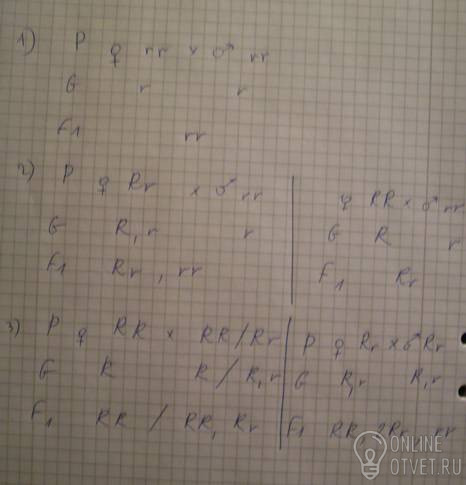 1) P ♀ rr x ♂ rr
G r r
F1 rr
2) P ♀ Rr x ♂ rr
G R, r r
F1 Rr, rr
♀ RR x ♂ rr
G R r
F1 Rr
3) P ♀ RR x RR/Rr
G R R/R, r
F1 RR / RR, Rr
P ♀ Rr x ♂ Rr
G R, r R, r
F1 RR 2Rr rr
ONLINE
OTVET.RU